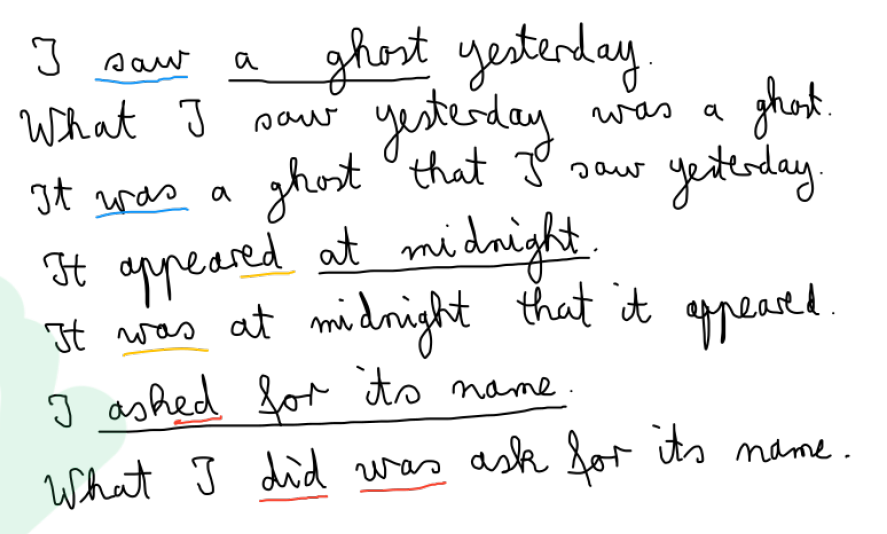 I saw a ghost yesterday.
What I saw yesterday was a ghost.
It was a ghost that I saw yesterday.
It appeared at midnight.
It was at midnight that it appeared.
I asked for its name.
What I did was ask for its name.